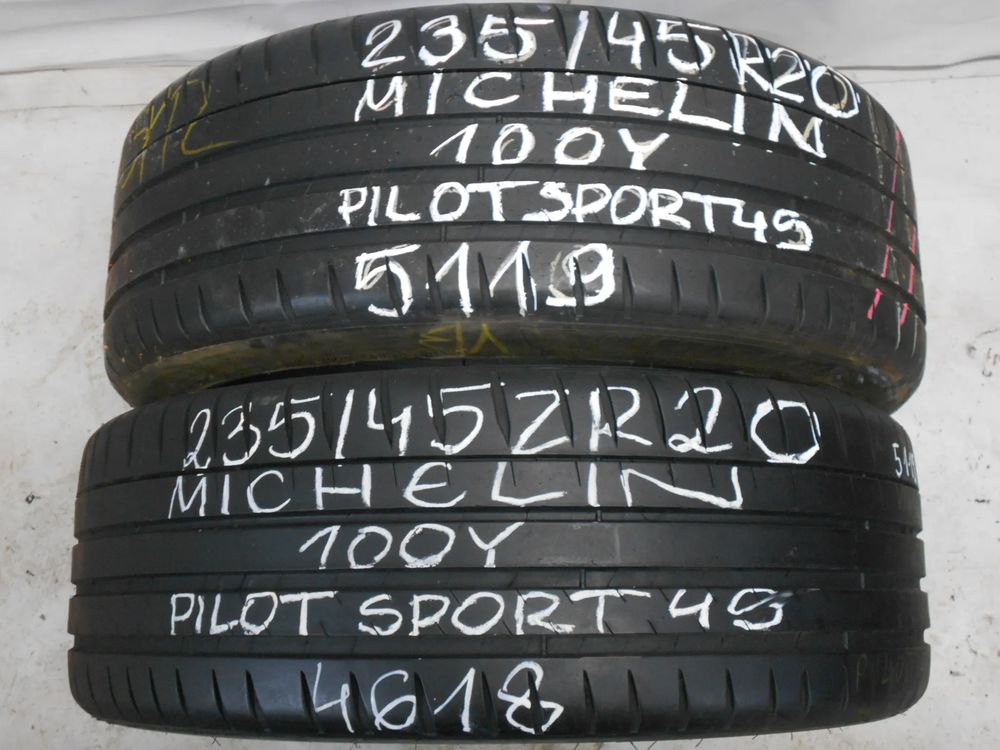 235/45R20
MICHELIN
100Y
PILOT SPORT 4S
5119
235/45ZR20
MICHELIN
100Y
PILOT SPORT 4S
4618